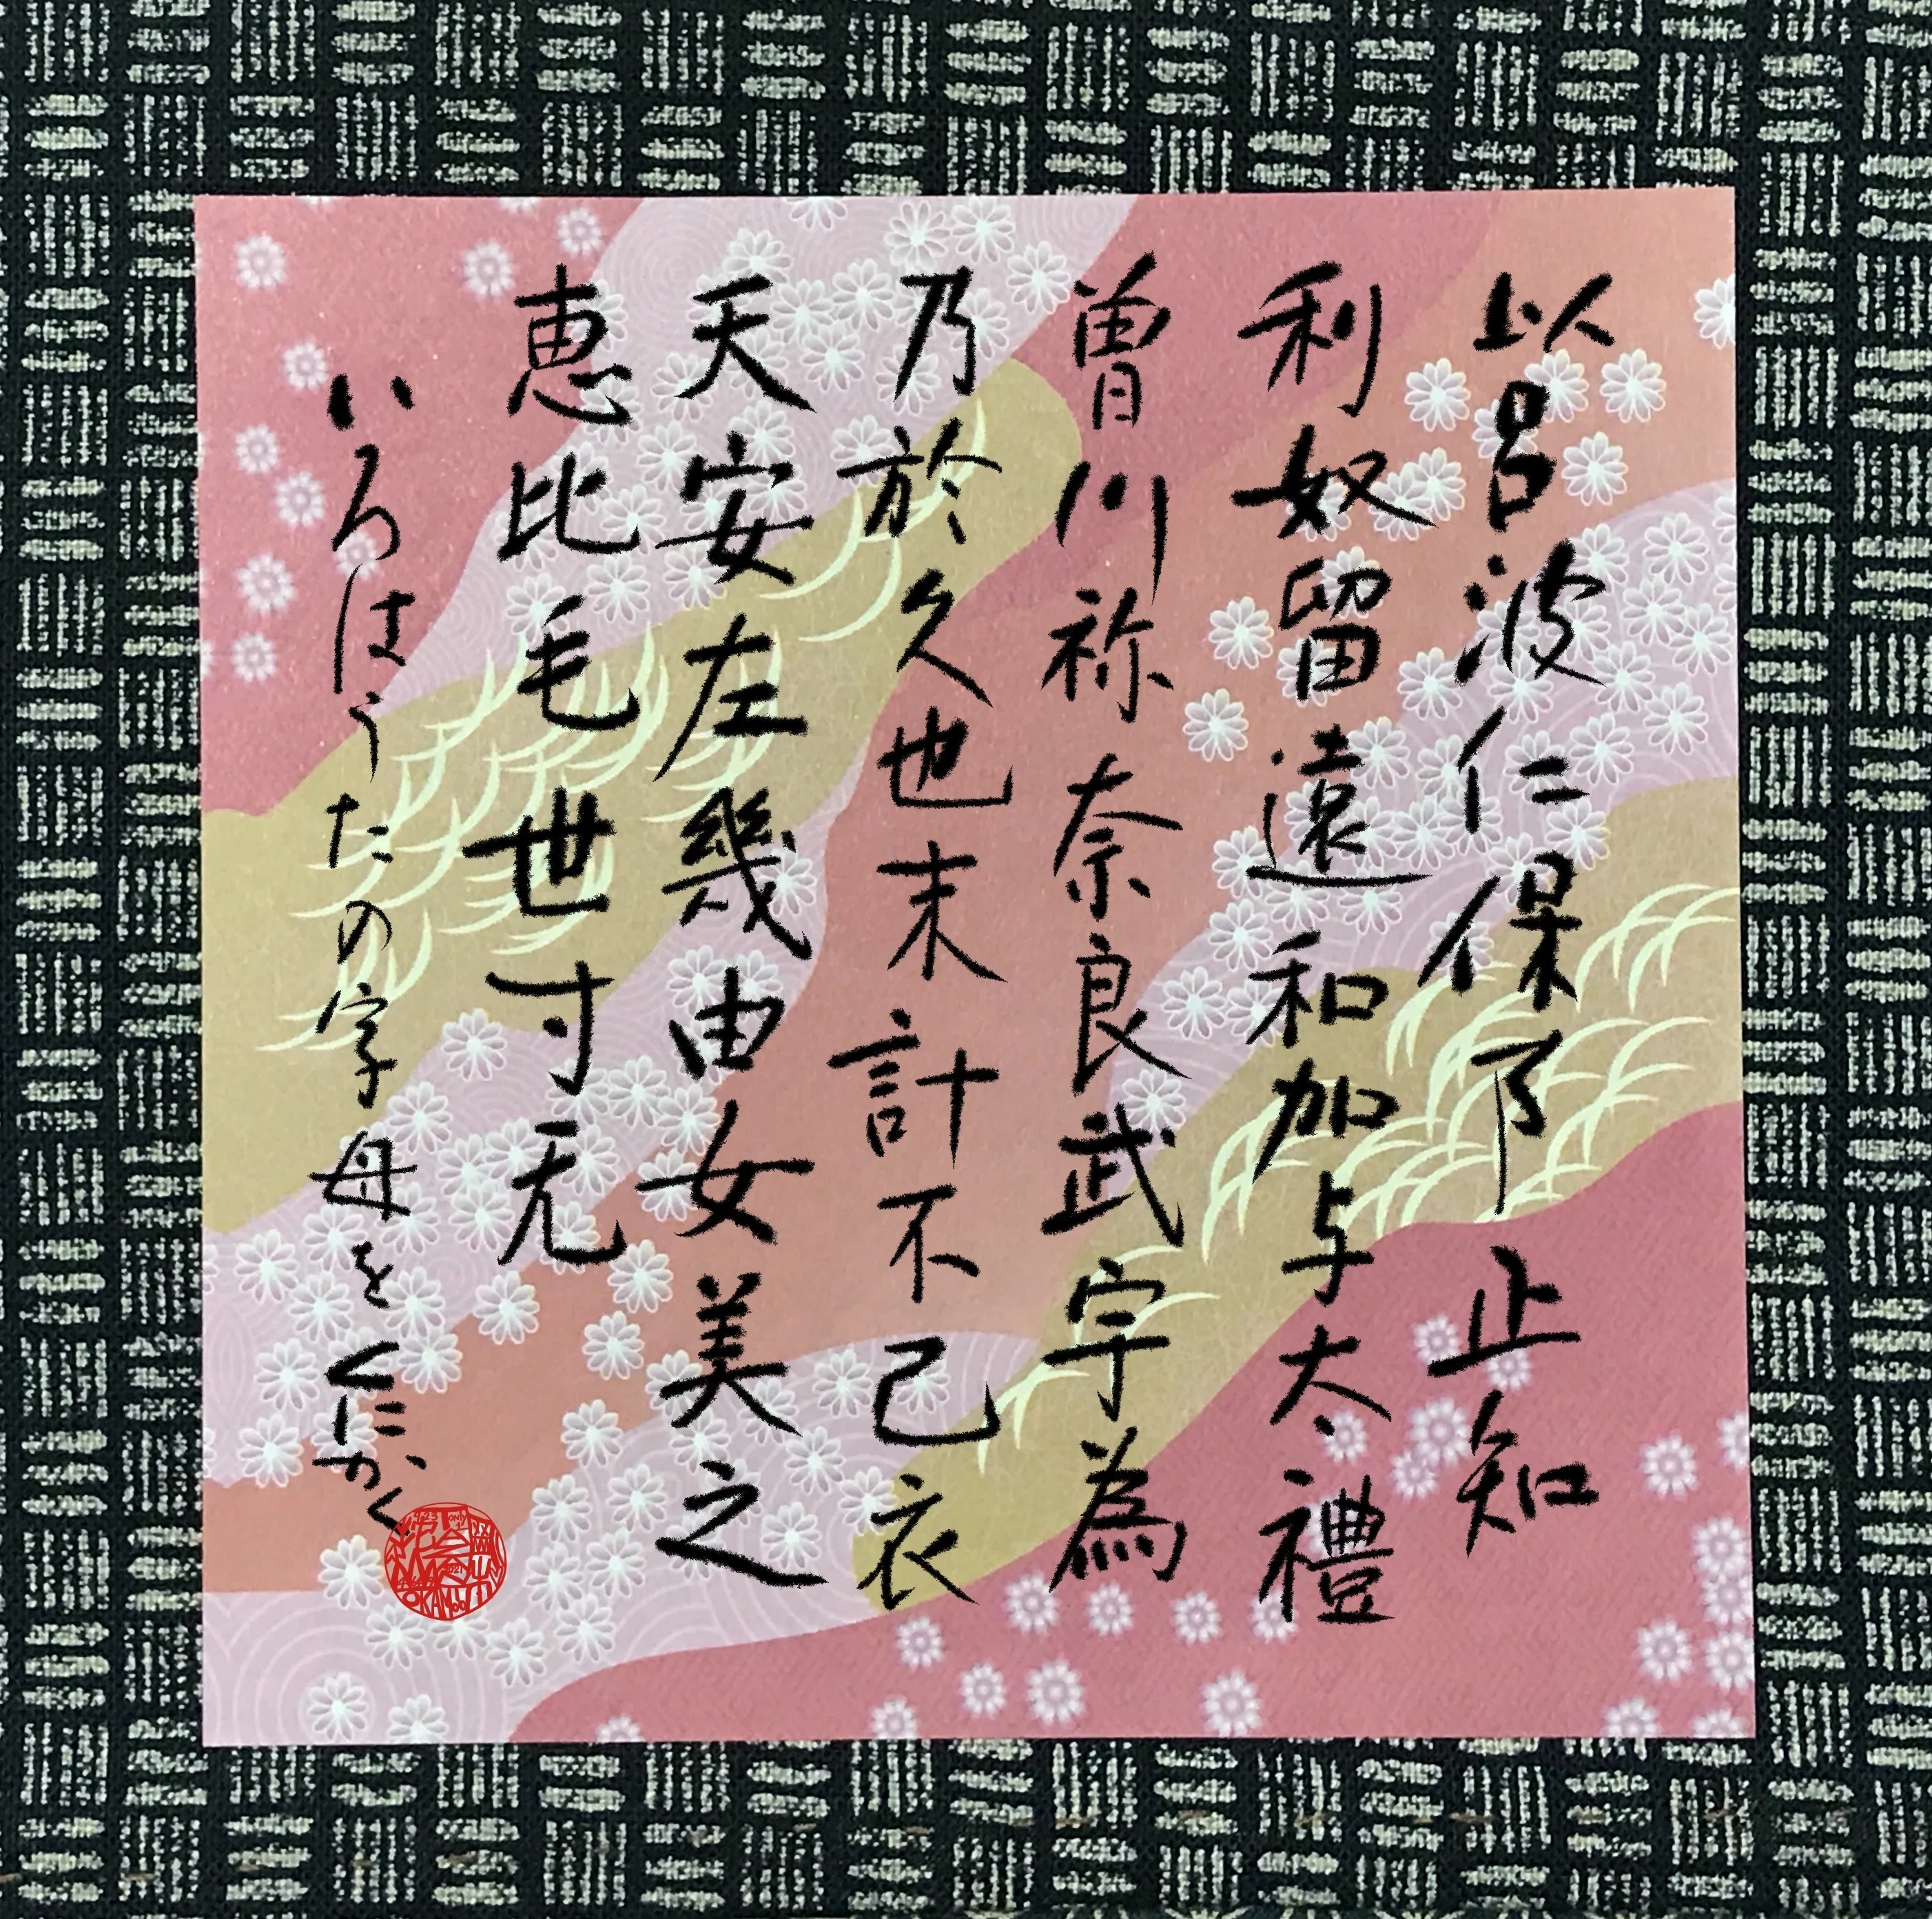 以呂波仁保阝止知
利奴留遠和加与太禮
曽川祢奈良武宇為
乃於久也末計不己衣
天安左幾由女美之
恵比毛世寸无
いろはうたの字母をくにかく